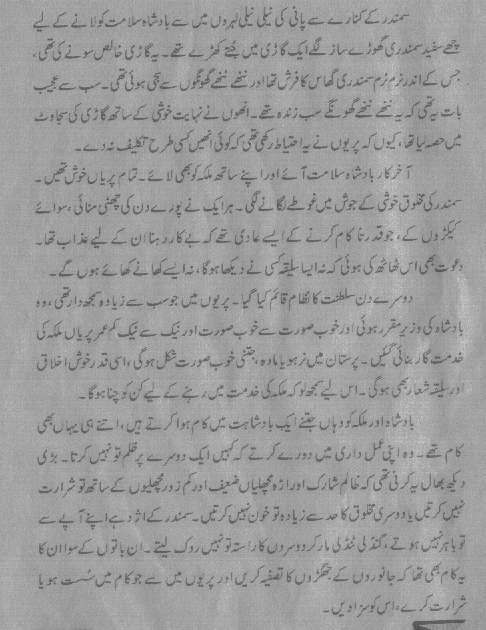 سمندر کے کنارے سے پانی کی نیلی نیلی لہروں میں سے بادشاہ سلامت کو لانے کے لیے
چھے سفید سمندری گھوڑے ساز لگے ایک گاڑی میں جُتے کھڑے تھے۔ یہ گاڑی خالص سونے کی تھی،
جس کے اندر نرم نرم سمندری گھاس کا فرش تھا اور ننھے ننھے گھونگوں سے سجی ہوئی تھی۔ سب سے عجیب
بات یہ تھی کہ یہ ننھے ننھے گھونگے سب زندہ تھے۔ انھوں نے نہایت خوشی کے ساتھ گاڑی کی سجاوٹ
میں حصہ لیا تھا، کیوں کہ پریوں نے یہ احتیاط رکھی تھی کہ کوئی انھیں کسی طرح تکلیف نہ دے۔
آخر کار بادشاہ سلامت آئے اور اپنے ساتھ ملکہ کو بھی لائے۔ تمام پریاں خوش تھیں۔
سمندر کی مخلوق خوشی کے جوش میں غوطے لگانے لگی۔ ہر ایک نے پورے دن کی چھٹی منائی، سوائے
کیکڑوں کے، جو قدرتاً کام کرنے کے ایسے عادی تھے کہ بے کار رہنا ان کے لیے عذاب تھا۔
دعوت بھی اس ٹھاٹھ کی ہوئی کہ نہ ایسا سلیقہ کسی نے دیکھا ہوگا، نہ ایسے کھانے کھائے ہوں گے۔
دوسرے دن سلطنت کا نظام قائم کیا گیا۔ پریوں میں جو سب سے زیادہ سمجھ دار تھی، وہ
بادشاہ کی وزیر مقرر ہوئی اور خوب صورت سے خوب صورت اور نیک سے نیک کم عمر پریاں ملکہ کی
خدمت گار بنائی گئیں۔ پرستان میں نر ہو یا مادہ، جتنی خوب صورت شکل ہوگی، اسی قدر خوش اخلاق
اور سلیقہ شعار بھی ہوگی۔ اس لیے سمجھ لو کہ ملکہ کی خدمت میں رہنے کے لیے کن کو چنا ہوگا۔
بادشاہ اور ملکہ کو وہاں جتنے ایک بادشاہت میں کام ہوا کرتے ہیں، اتنے ہی یہاں بھی
کام تھے۔ وہ اپنی عمل داری میں دورے کرتے کہ کہیں ایک دوسرے پر ظلم تو نہیں کرتا۔ بڑی
دیکھ بھال یہ کرنی تھی کہ ظالم شارک اور اڑہ مچھلیاں ضعیف اور کم زور مچھلیوں کے ساتھ تو شرارت
نہیں کرتیں یا دوسری مخلوق کا حد سے زیادہ تو خون نہیں کرتیں۔ سمندر کے اژدہے اپنے آپے سے
تو باہر نہیں ہوتے، کنڈلی ٹنڈلی مار کر دوسروں کا راستہ تو نہیں روک لیتے۔ ان باتوں کے سوا ان کا
یہ کام بھی تھا کہ جانوروں کے جھگڑوں کا تصفیہ کریں اور پریوں میں سے جو کام میں سُست ہو یا
شرارت کرے، اس کو سزا دیں۔